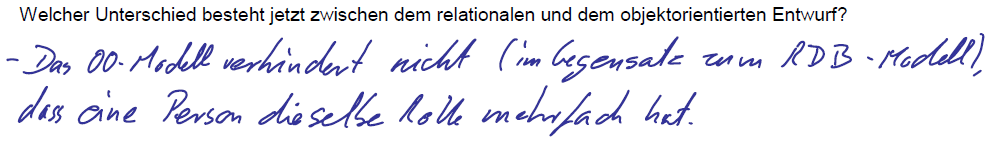 Welcher Unterschied besteht jetzt zwischen dem relationalen und dem objektorientierten Entwurf?
- Das OO-Modell verhindert nicht (im Gegensatz zum RDB-Modell),
dass eine Person dieselbe Rolle mehrfach hat.